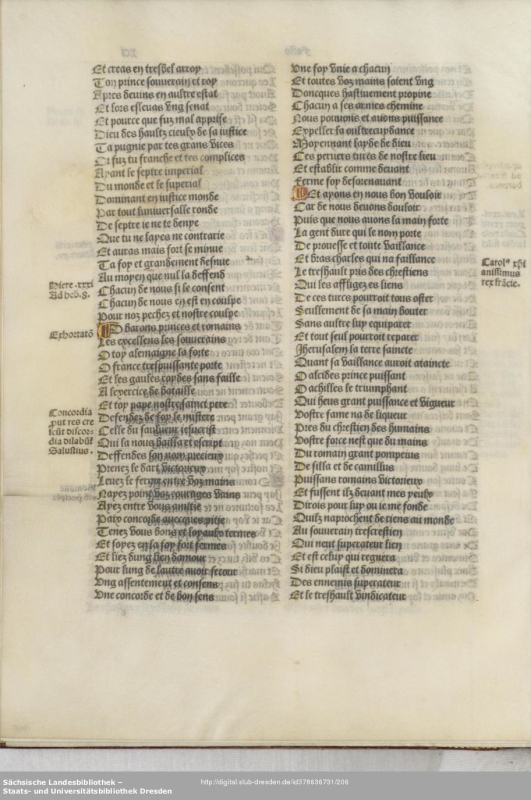 Et creas en tresbel arroy
Ton prince souuerain et roy
Apres deuins en aultre estat
Et lors esleuas vng senat
Et pource que fuz mal apprise
Dieu des haultz cieulx de sa iustice
Ta pugnie par tes grans vices
Or fuz tu franche et tes complices
Ayant le septre imperial
Du monde et le superial
Dominant en iustice monde
Par tout luniuerselle ronde
De septre ie ne te denye
Que tu ne layes ne contrarie
Et auras mais fort se minue
Ta foy et grandement desnue
Au moyen que nul la deffend
Chacun de nous si le consent
Chacun de nous en est en coulpe
Pour noz pechez et nostre coulpe
O barons princes et romains
Les excellens les souuerains
O toy alemaigne la forte
O france trespuissante porte
Et les gaules roydes sans faille
A lexercice de bataille
Et toy pape nostre sainct pere
Deffendez de foy le mistere
Celle du sauueur iesucrist
Qui la nous bailla et escript
Deffendes son nom precieux
Prenez le dart victorieux
Leuez le ferme entre voz mains
Nayez point voz courages vains
Ayez entre vous amitie
Paix concorde auecques pitie
Tenez vous bons et loyaulx termes
Et soyez en la foy fort fermes
Et liez dung lien damour
Pour lung de lautre auoir secour
Vng assentement et consens
Vne concorde et de bon sens
Hiere .xxxi
Ad heb. 8.
Exhortatō
Concordia
put res cre
scūt discor-
dia dilabūt
Salustius.
Vne foy vnie a chacun
Et toutes voz mains soient vng
Doncques hastiuement propine
Chacun a ses armes chemine
Nous pouuons et auons puissance
Expeller sa oultrecuydance
Moyennant layde de dieu
Ces peruers turcs de nostre lieu
Et establir comme deuant
Ferme foy desorenauant
Et ayons en nous bon vouloir
Car de nous deuons douloir
Puis que nous auons la main forte
La gent dure qui le nom porte
De prouesse et toute vaillance
Et bras charles qui na faillance
Le treshault pris des chrestiens
Qui les affligez es liens
De ces turcs pourroit tous oster
Seullement de sa main bouter
Sans aultre luy equiparer
Et tout seul pourroit reparer
Jherusalem la terre saincte
Quant sa vaillance auroit ataincte
O alcides prince puissant
O achilles le triumphant
Qui heus grant puissance et vigueur
Vostre fame na de liqueur
Pres du chrestien des humains
Vostre force nest que du mains
Du romain grant pompeius
De silla et de camillus
Puissans romains victorieux
Et fussent ilz deuant mes yeulx
Dirois pour luy ou ie me fonde
Quilz naprochent de riens au monde
Au souuerain trescrestien
Qui neut superateur lien
Et est celuy qui regnera
Si dieu plaist et dominera
Des ennemis superateur
Et le treshault vindicateur
Carolꝰ xp̄i
anissimus
rex frācie.
Sächsische Landesbibliothek –
Staats- und Universitätsbibliothek Dresden
http://digital.slub-dresden.de/id378636731/206